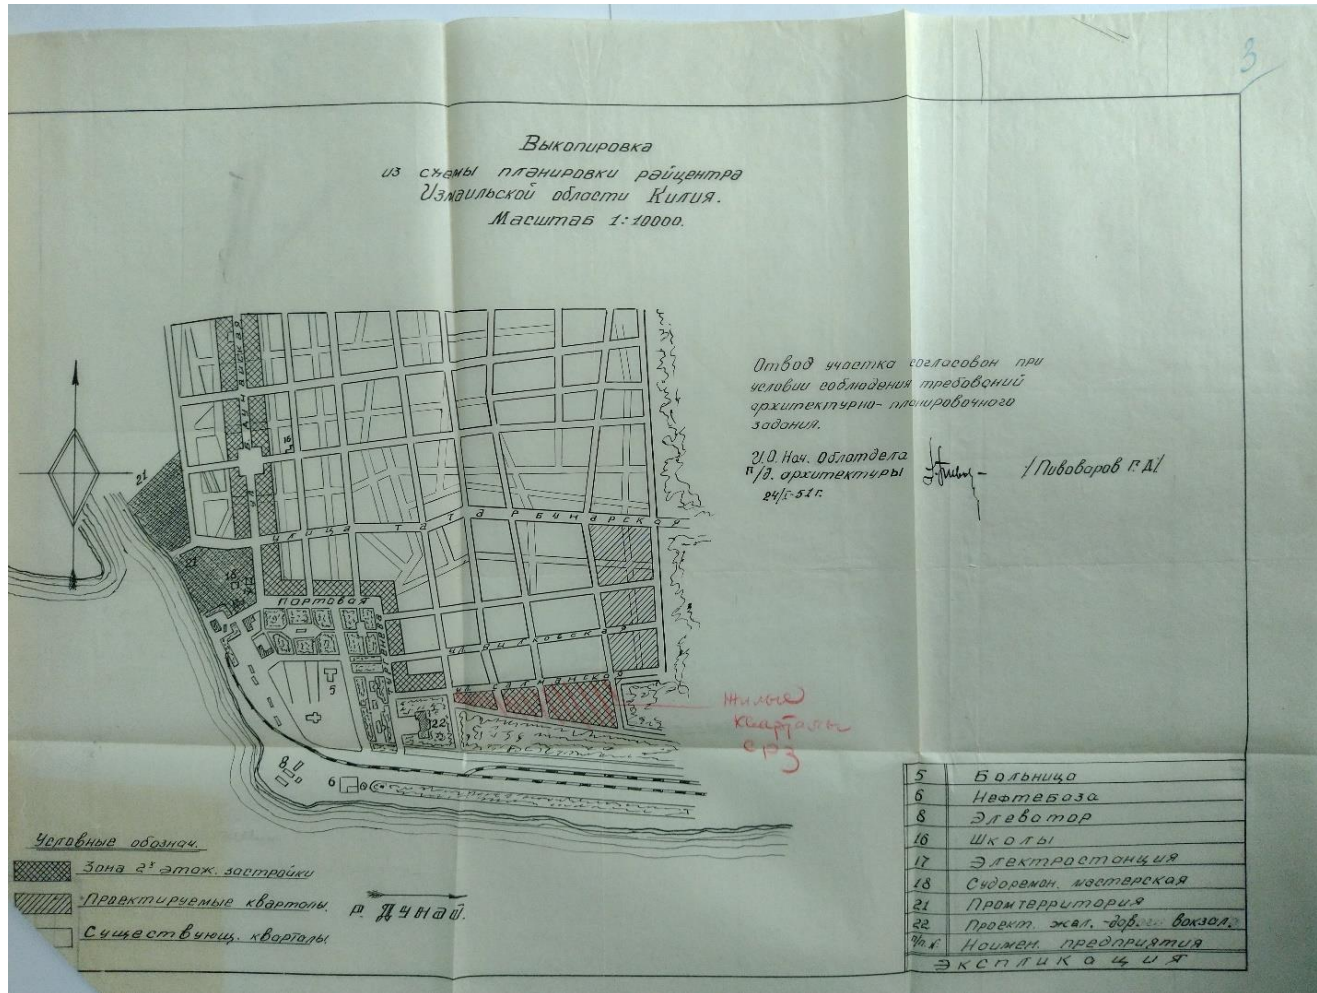 3
Выкопировка
из схемы планировки райцентра
Измаильской области Килия.
Масштаб 1:10000.
Отвод участка согласован при
условии соблюдения требований
архитектурно-планировочного
задания.
И.О. Нач. Облотдела
п/д. архитектуры
24/I-51г.
/Пивоваров Г.Д/
21
16
улица Татарбунарская
21
18
17
Портовая
ул. Вилковская
5
22
8
6
Жилые
кварталы
СРЗ
Условные обознач.
Зона 2х этаж. застройки
Проектируемые кварталы.
Существующ. кварталы
р. Дунай.
5 Больница
6 Нефтебаза
8 Элеватор
16 Школы
17 Электростанция
18 Судоремон. мастерская
21 Промтерритория
22 Проект. жел.-дорож. вокзал.
п/п.№ Наимен. предприятия
Экспликация